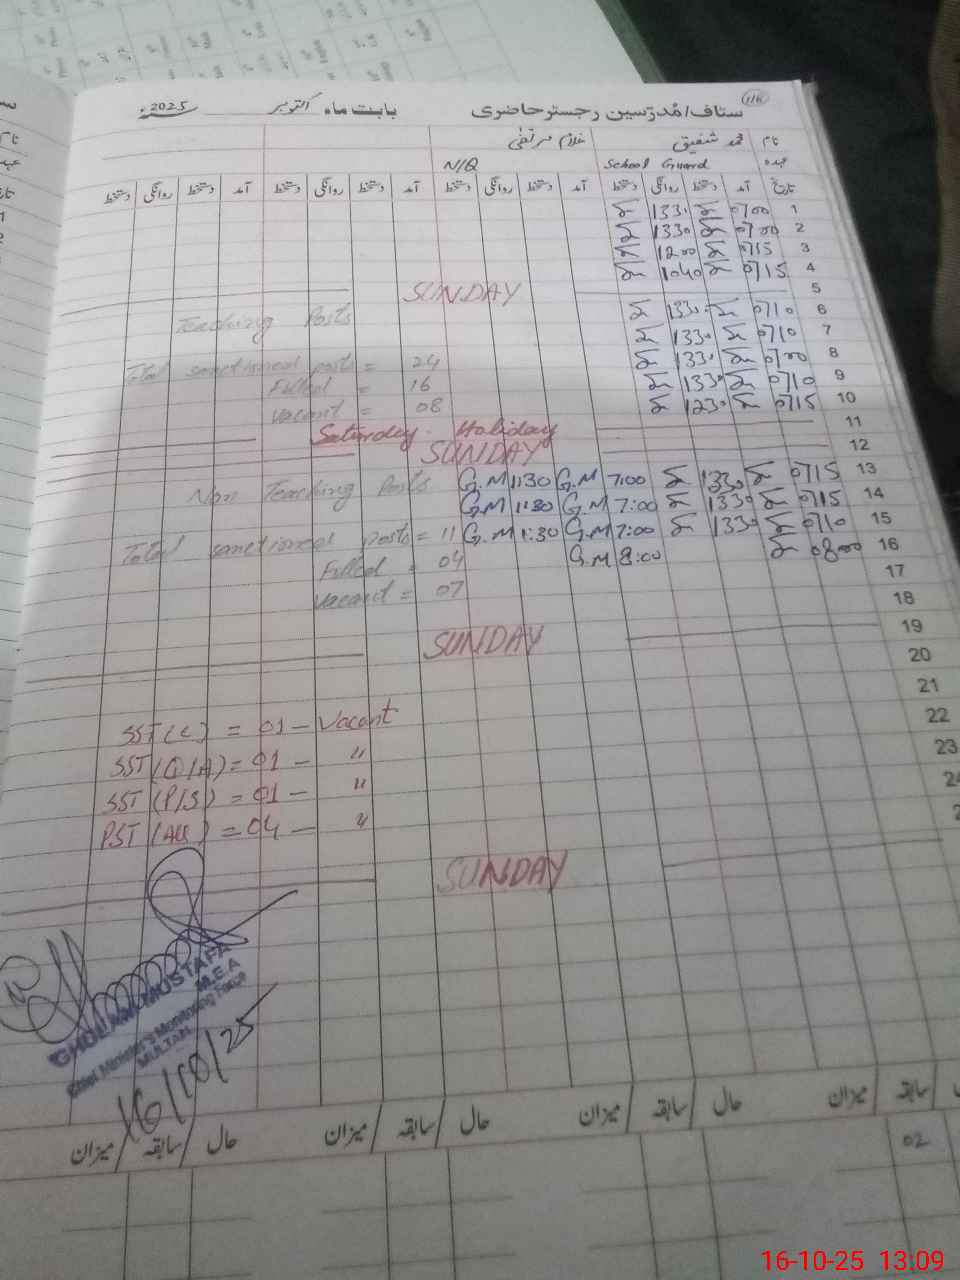 سٹاف/مُدرّسین رجسٹر حاضری بابت ماہ اکتوبر 2025ء
نام محمد شفیق غلام مرتضٰی
عہدہ School Guard N/Q
تاریخ آمد دستخط روانگی دستخط آمد دستخط روانگی دستخط آمد دستخط روانگی دستخط آمد دستخط روانگی دستخط
1 0700 1330
2 0700 1330
3 0715 1200
4 0715 1040
5 SUNDAY
6 0710 1330
Teaching Posts
7 0710 1330
8 0700 1330
Total sanctioned posts = 24
9 0710 1330
Filled = 16
10 0715 1230
Vacant = 08
11 Saturday Holiday
12 SUNDAY
13 0715 1330 7:00 G.M 1:30 G.M
Non Teaching Posts
14 0715 1330 7:00 G.M 1:30 G.M
15 0710 1330 7:00 G.M 1:30 G.M
Total sanctioned posts = 11
16 0800 8:00 G.M
Filled = 04
17
Vacant = 07
18
19 SUNDAY
20
21
22
SST (C) = 01 - Vacant
23
SST (G/A) = 01 - "
24
SST (P/S) = 01 - "
PST (All) = 04 - "
SUNDAY
GHULAM MUSTAFA
M.E.A
Chief Minister's Monitoring Force
MULTAN
16/10/25
میزان / سابقہ / حال میزان / سابقہ / حال میزان / سابقہ / حال میزان / سابقہ
02
16-10-25 13:09